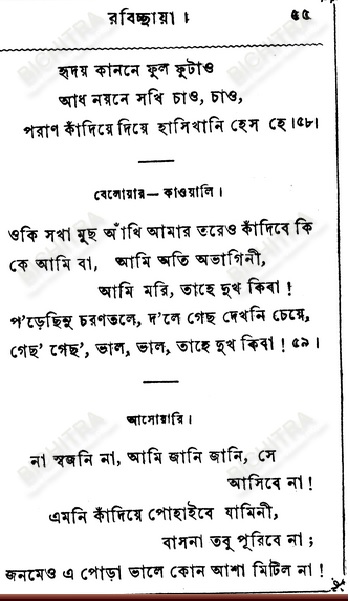 রবিচ্ছায়া। ৫৫
হৃদয় কাননে ফুল ফুটাও
আধ নয়নে সখি চাও, চাও,
পরাণ কাঁদিয়ে দিয়ে হাসিখানি হেস হে।৫৮।
বেলোয়ার— কাওয়ালি।
ওকি সখা মুছ আঁখি আমার তরেও কাঁদিবে কি
কে আমি বা, আমি অতি অভাগিনী,
আমি মরি, তাহে দুখ কিবা!
প'ড়েছিনু চরণতলে, দ'লে গেছ দেখনি চেয়ে,
গেছ' গেছ', ভাল, ভাল, তাহে দুখ কিবা! ৫৯।
আসোয়ারি।
না স্বজনি না, আমি জানি জানি, সে
আসিবে না!
এমনি কাঁদিয়ে পোহাইবে যামিনী,
বাসনা তবু পূরিবে না;
জনমেও এ পোড়া ভালে কোন আশা মিটিল না!
BICHITRA